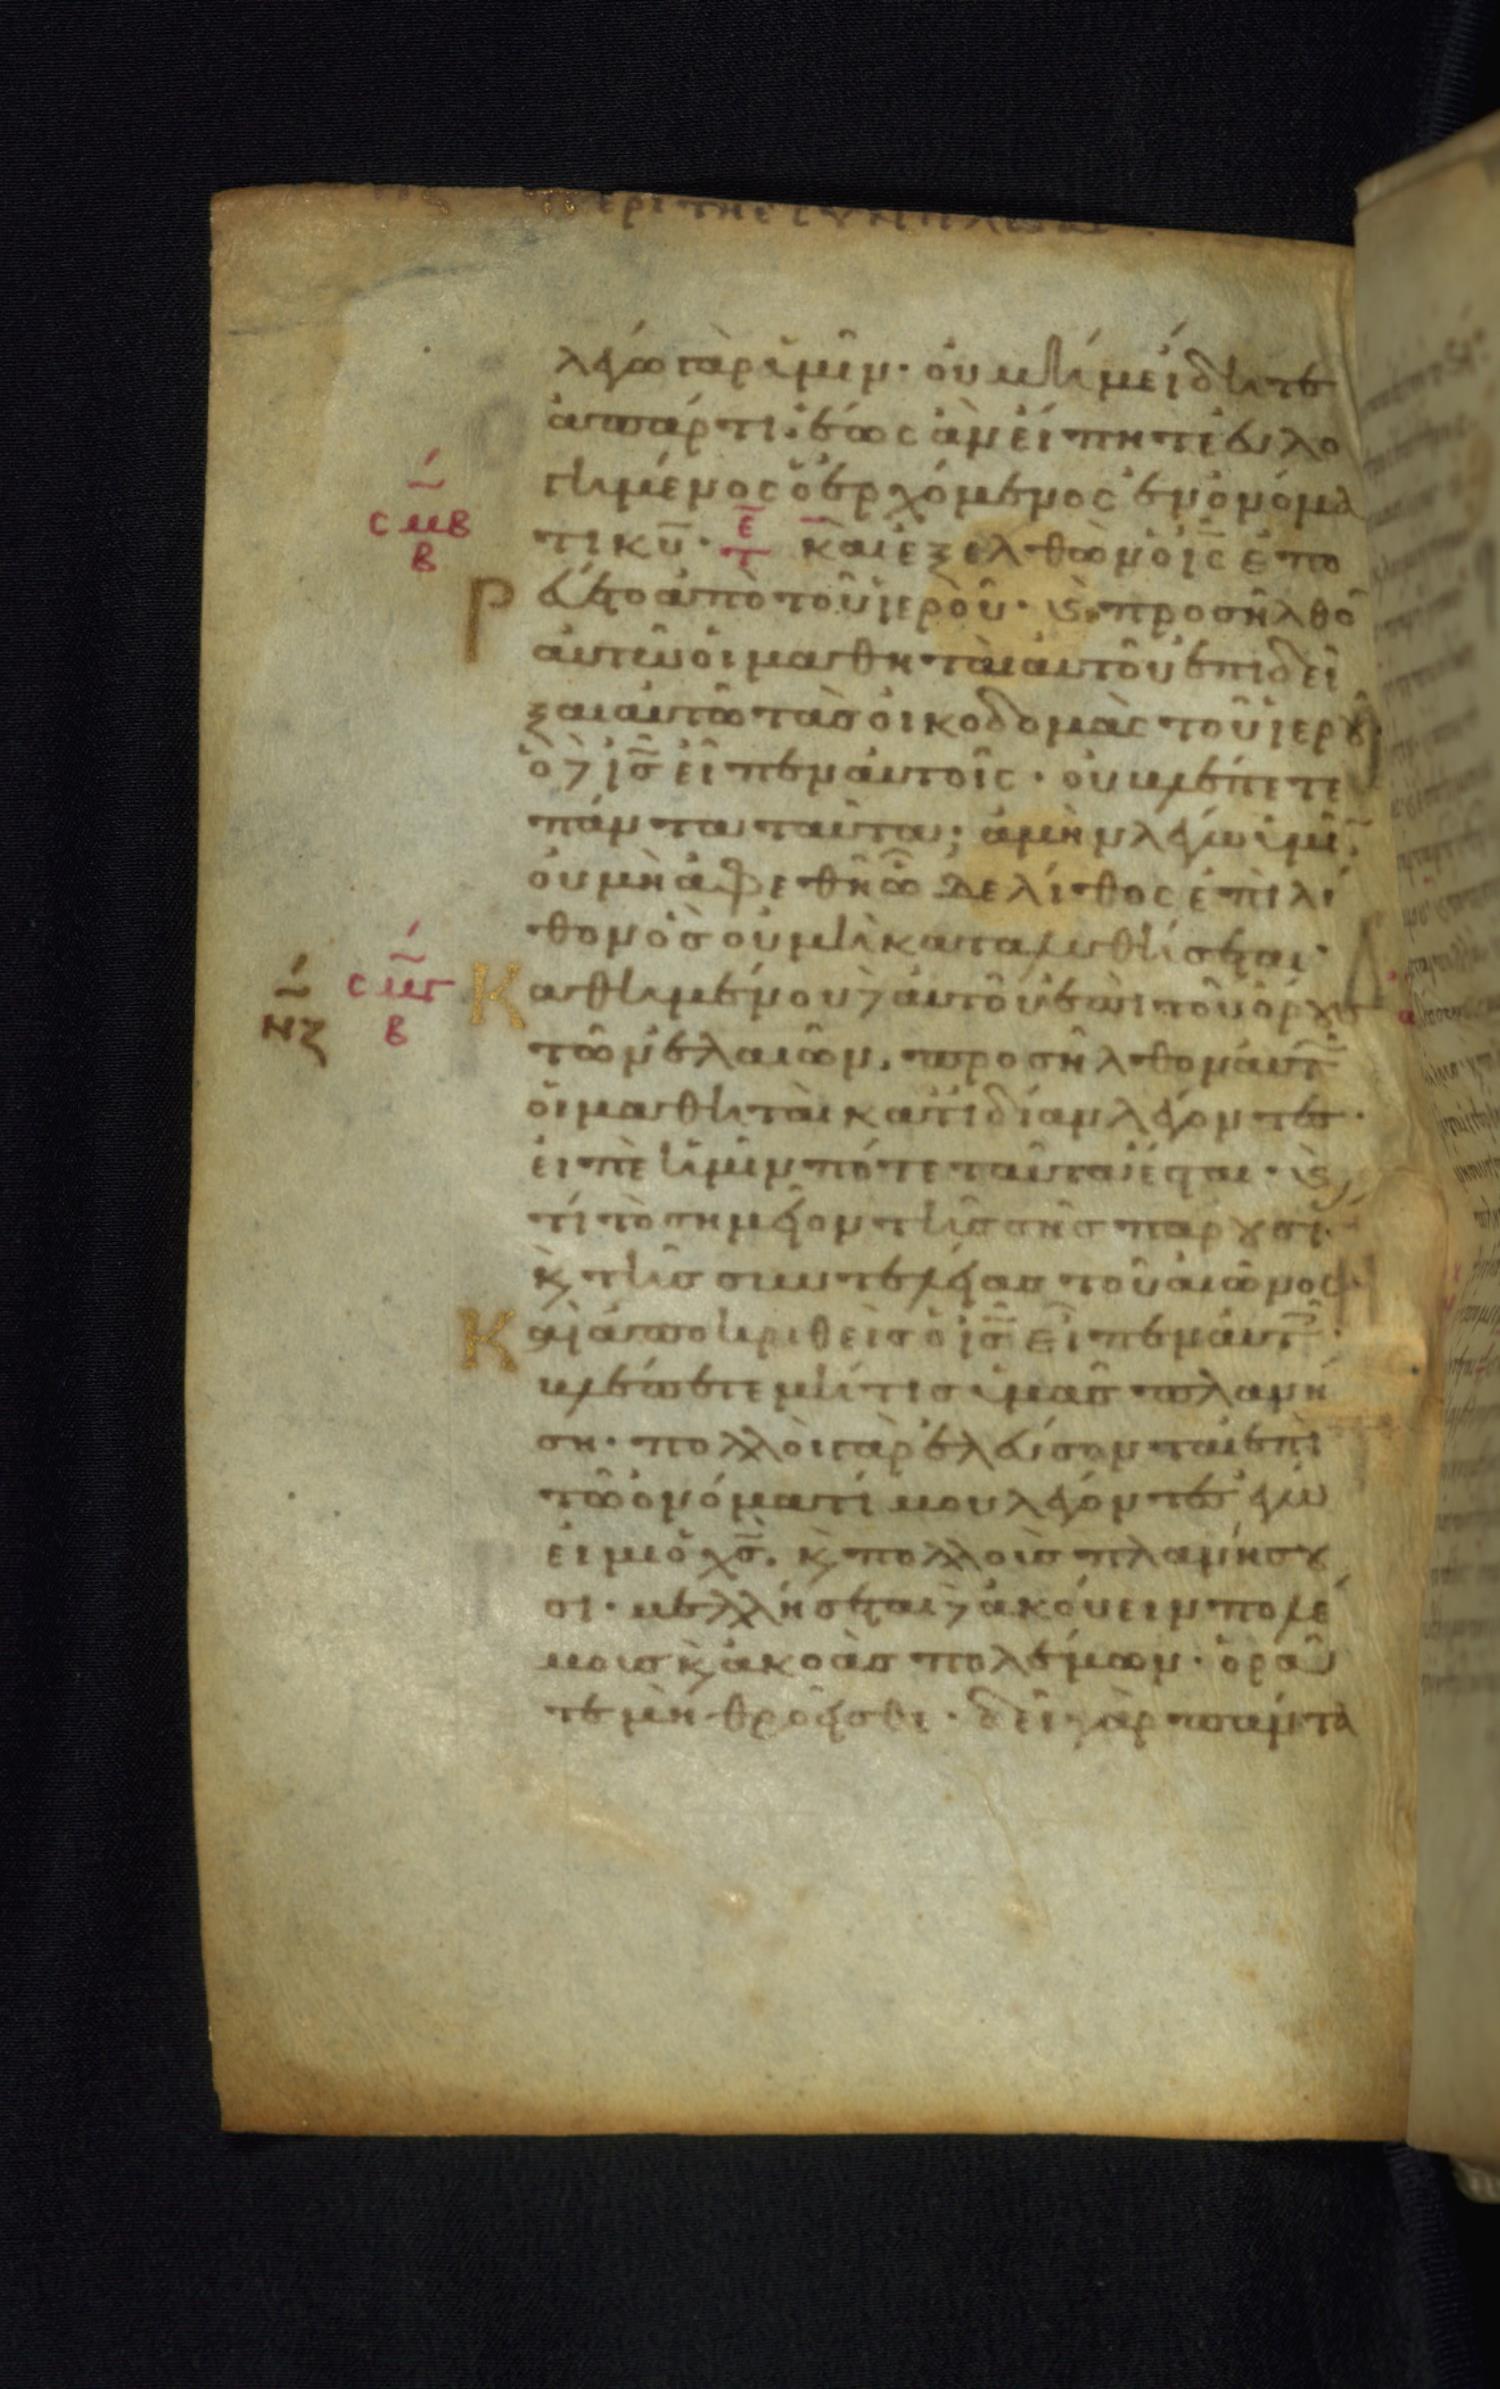 περι της συντελειας
λέγω γὰρ ὑμῖν· οὐ μή με ἴδητε
ἀπάρτι· ἕως ἂν εἴπητε εὐλο
γημένος ὁ ἐρχόμενος ἐν ὀνόμα
τι κυ̅· ε̅τ καὶ ἐξελθὼν ὁ ις̅ ἐπο
ρεύετο ἀπὸ τοῦ ἱεροῦ· κ προσῆλθο̅
σμβ
β
αὐτῷ οἱ μαθηταὶ αὐτοῦ ἐπιδεῖ
ξαι αὐτῷ τὰς οἰκοδομὰς τοῦ ἱεροῦ
ὁ δὲ ις̅ εἶπεν αὐτοῖς· οὐ βλέπετε
πάντα ταῦτα; ἀμὴν λέγω ὑμῖ̅·
οὐ μὴ ἀφεθῇ ὧδε λίθος ἐπὶ λί
θον ὃς οὐ μὴ καταλυθήσεται·
Καθημένου δὲ αὐτοῦ ἐπὶ τοῦ ὄρους
σμγ
β
νζ
τῶν ἐλαιῶν, προσῆλθον αὐτ
οἱ μαθηταὶ κατιδίαν λέγοντες·
εἰπὲ ἡμῖν πότε ταῦτα ἔσται· κ
τί τὸ σημεῖον τῆς σῆς παρουσί
κ τῆς συντελείας τοῦ αἰῶνος
Καὶ ἀποκριθεὶς ὁ ις̅ εἶπεν αὐτ·
βλέπετε μή τις ὑμᾶς πλανή
ση· πολλοὶ γὰρ ἐλεύσονται ἐπὶ
τῷ ὀνόματί μου λέγοντες ἐγώ
εἰμι ὁ χς̅. κ πολλοὺς πλανήσου
σι· μελλήσεται δὲ ἀκούειν πολέ
μους κ ἀκοὰς πολέμων· ὁρᾶ
τε μὴ θροεῖσθε· δεῖ γὰρ πάντα